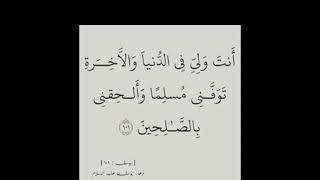 أَنتَ وَلِىِّ فِى الدُّنيَا وَالْآخِـرَةِ
تَوَفَّـنِى مُسلِمًا وَأَلـحِقنِى
بِالصَّـٰلِحِينَ ١٠١
[ يوسف : ١٠١ ]
دعاء يوسف عليه السلام